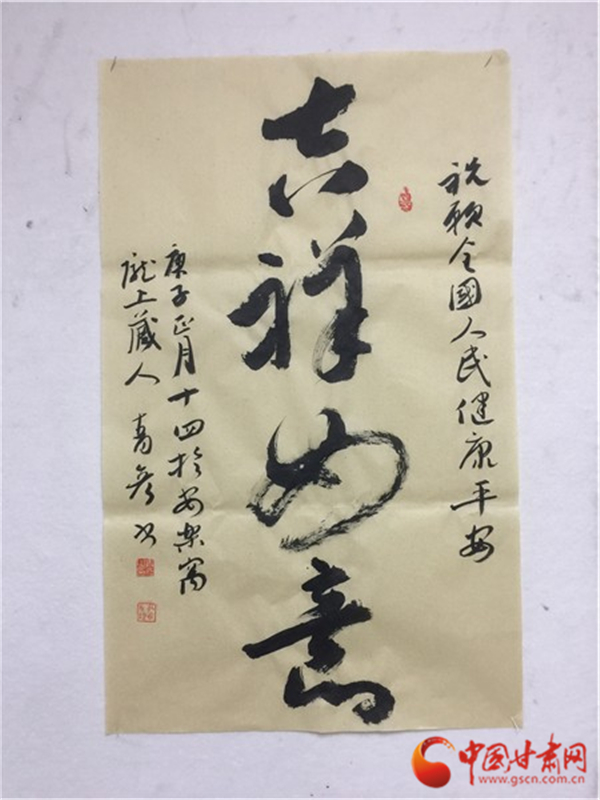 祝願全國人民健康平安
吉祥如意
庚子正月十四於安樂窩
隴上藏人 青彥书
中国甘肃网
www.gscn.com.cn